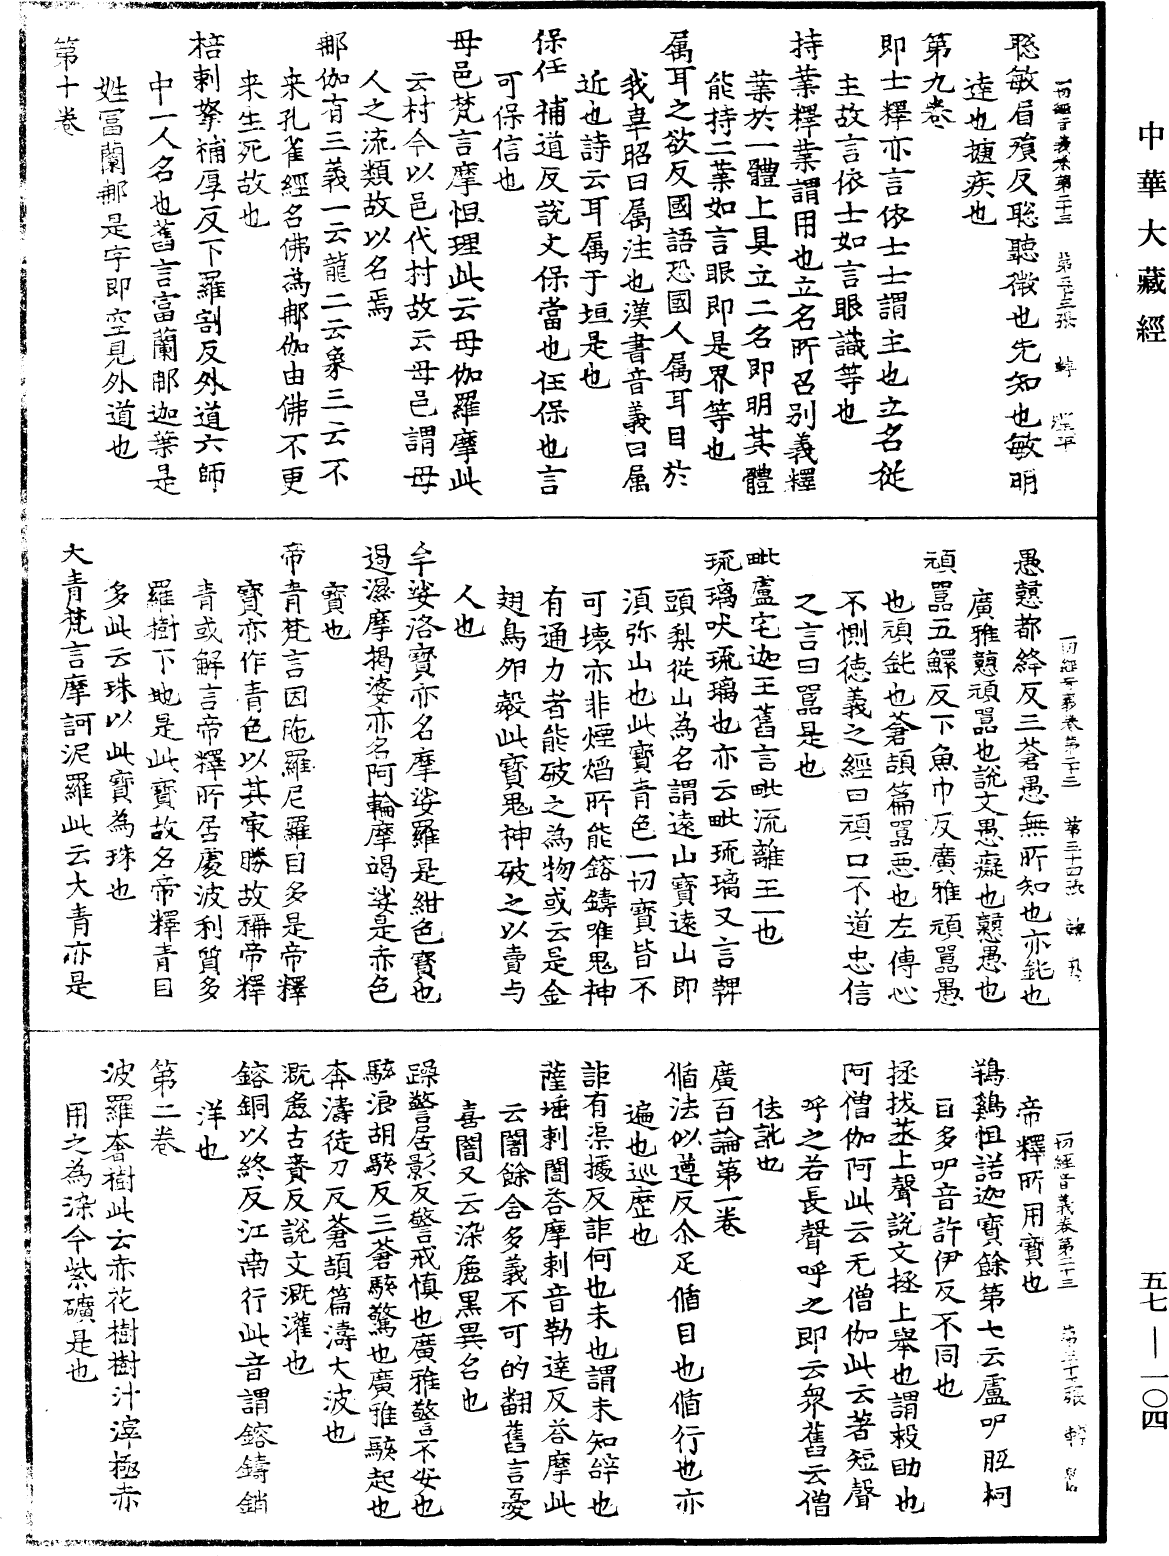 中華大藏經
一切經音義卷第二十三　第三十三張
聡敏眉殞反聡聽微也先知也敏明
達也㨗疾也
第九卷
即士釋亦言依士士謂主也立名從
主故言依士如言眼識等也
持業釋業謂用也立名所召別義釋
業於一體上具立二名即明其體
能持二業如言眼即是界等也
属耳之欲反國語恐國人属耳目於
我韋昭曰属注也漢書音義曰属
近也詩云耳属于垣是也
保任 補道反說文保當也任保也言
可保信也
母邑梵言摩怛理此云母伽羅摩此
云村今以邑代村故云母邑謂母
人之流類故以名焉
那伽有三義一云龍二云象三云不
来孔雀經名佛為那伽由佛不更
来生死故也
棓剌拏補厚反下羅割反外道六師
中一人名也舊言富蘭那迦葉是
姓富蘭那是字即空見外道也
第十卷
一切經音義卷第二十三　第三十四張
愚戇都絳反三蒼愚無所知也亦鈍也
廣雅戇頑嚚也說文愚癡也戇愚也
頑嚚五鰥反下魚巾反廣雅頑嚚愚
也頑鈍也蒼頡篇嚚惡也左傳心
不惻德義之經曰頑口不道忠信
之言曰嚚是也
毗盧宅迦王舊言毗流離王也
琉璃吠琉璃也亦云毗琉璃又言鞞
頭梨從山為名謂遠山寶遠山即
須弥山也此寶青色一切寶皆不
可壞亦非煙焰所能鎔鑄唯鬼神
有通力者能破之為物或云是金
翅鳥卵㲉此寶鬼神破之以賣与
人也
牟娑洛寶亦名摩娑羅是紺色寶也
遏濕摩揭婆亦名阿輪摩竭娑是赤色
寶也
帝青梵言因陁羅尼羅目多是帝釋
寶亦作青色以其㝡勝故稱帝釋
青或解言帝釋所居處波利質多
羅樹下地是此寶故名帝釋青目
多此云珠以此寶為珠也
大青梵言摩訶泥羅此云大青亦是
一切經音義卷第二十三　第三十五張
帝釋所用寶也
鵄鷄怛諾迦寶餘第七云盧呬胝柯
目多呬音許伊反不同也
拯拔蒸上聲說文拯上舉也謂救助也
阿僧伽阿此云无僧伽此云著短聲
呼之若長聲呼之即云衆舊云僧
佉訛也
廣百論第一卷
循法似遵反尒疋循自也循行也亦
遍也巡歷也
詎有渠據反詎何也未也謂未知辝也
薩埵剌闇荅摩剌音勒達反荅摩此
云闇餘含多義不可的翻舊言憂
喜闇又云染麁黑異名也
躁警居影反警戒慎也廣雅警不安也
駭浪胡駭反三蒼駭驚也廣雅駭起也
奔濤徒刀反蒼頡篇濤大波也
溉鹵古賚反說文溉灌也
鎔銅以終反江南行此音謂鎔鑄銷
洋也
第二卷
波羅奢樹此云赤花樹樹汁滓極赤
用之為染今紫礦是也
五七—一〇四